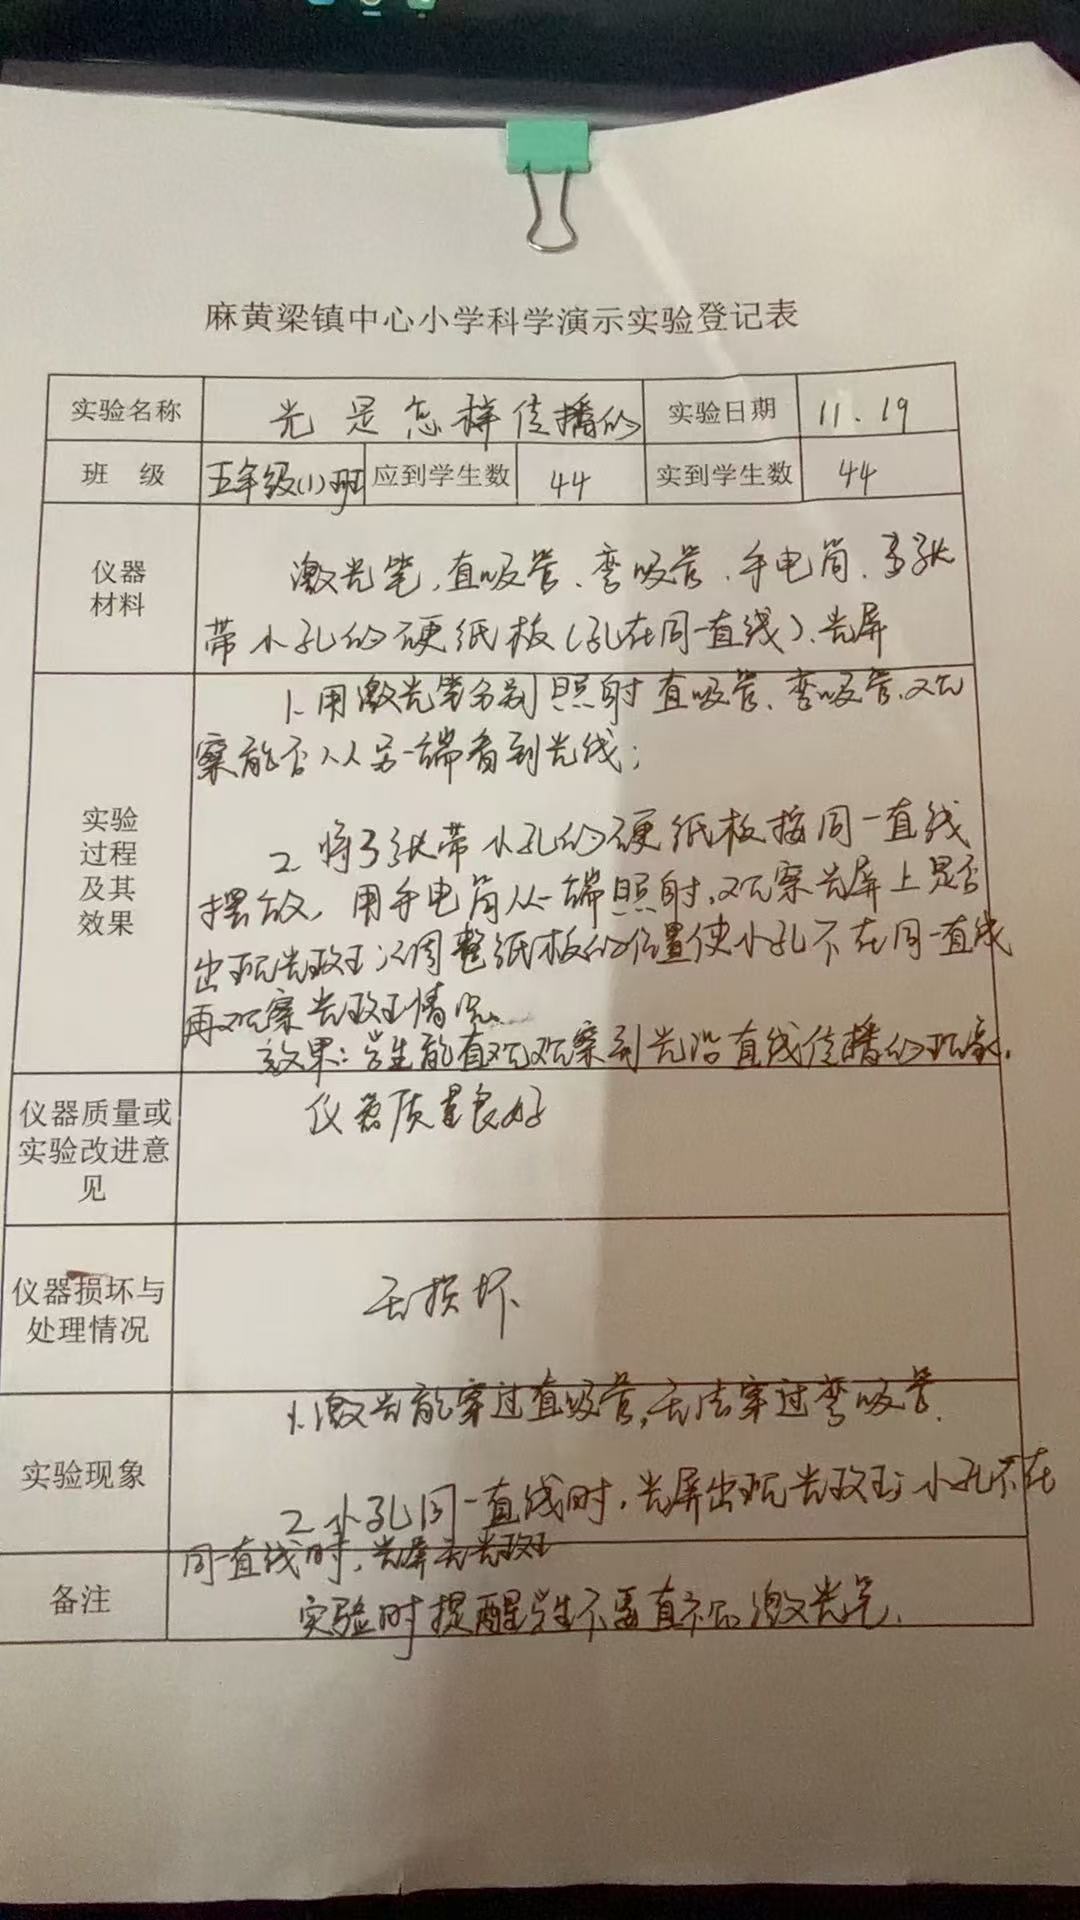 麻黄梁镇中心小学科学演示实验登记表
实验名称 光是怎样传播的 实验日期 11.19
班 级 五年级(1)班 应到学生数 44 实到学生数 44
仪器
材料
激光笔、直吸管、弯吸管、手电筒、多张
带小孔的硬纸板(孔在同一直线)、光屏
实验
过程
及其
效果
1.用激光笔分别照射直吸管、弯吸管、观
察能否从另一端看到光线;
2.将3张带小孔的硬纸板按同一直线
摆放,用手电筒从一端照射,观察光屏上是否
出现光斑;调整纸板的位置使小孔不在同一直线
再观察光斑情况。
效果:学生能直观观察到光沿直线传播的现象.
仪器质量或
实验改进意
见
仪器质量良好
仪器损坏与
处理情况
无损坏
实验现象
1.激光能穿过直吸管,无法穿过弯吸管.
2.小孔同一直线时,光屏出现光斑;小孔不在
同一直线时,光屏无光斑
备注
实验时提醒学生不要直视激光笔.